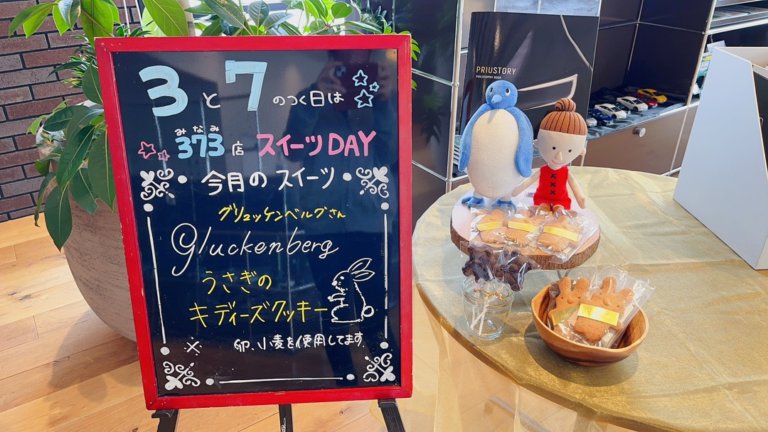 3と7のつく日は
みなみ
373店 スイーツDAY
今月のスイーツ
グリュッケンベルグさん
gluckenberg
うさぎの
キディーズクッキー
※ 卵、小麦を使用してます。
PRIUSTORY
PHILOSOPHY BOOK